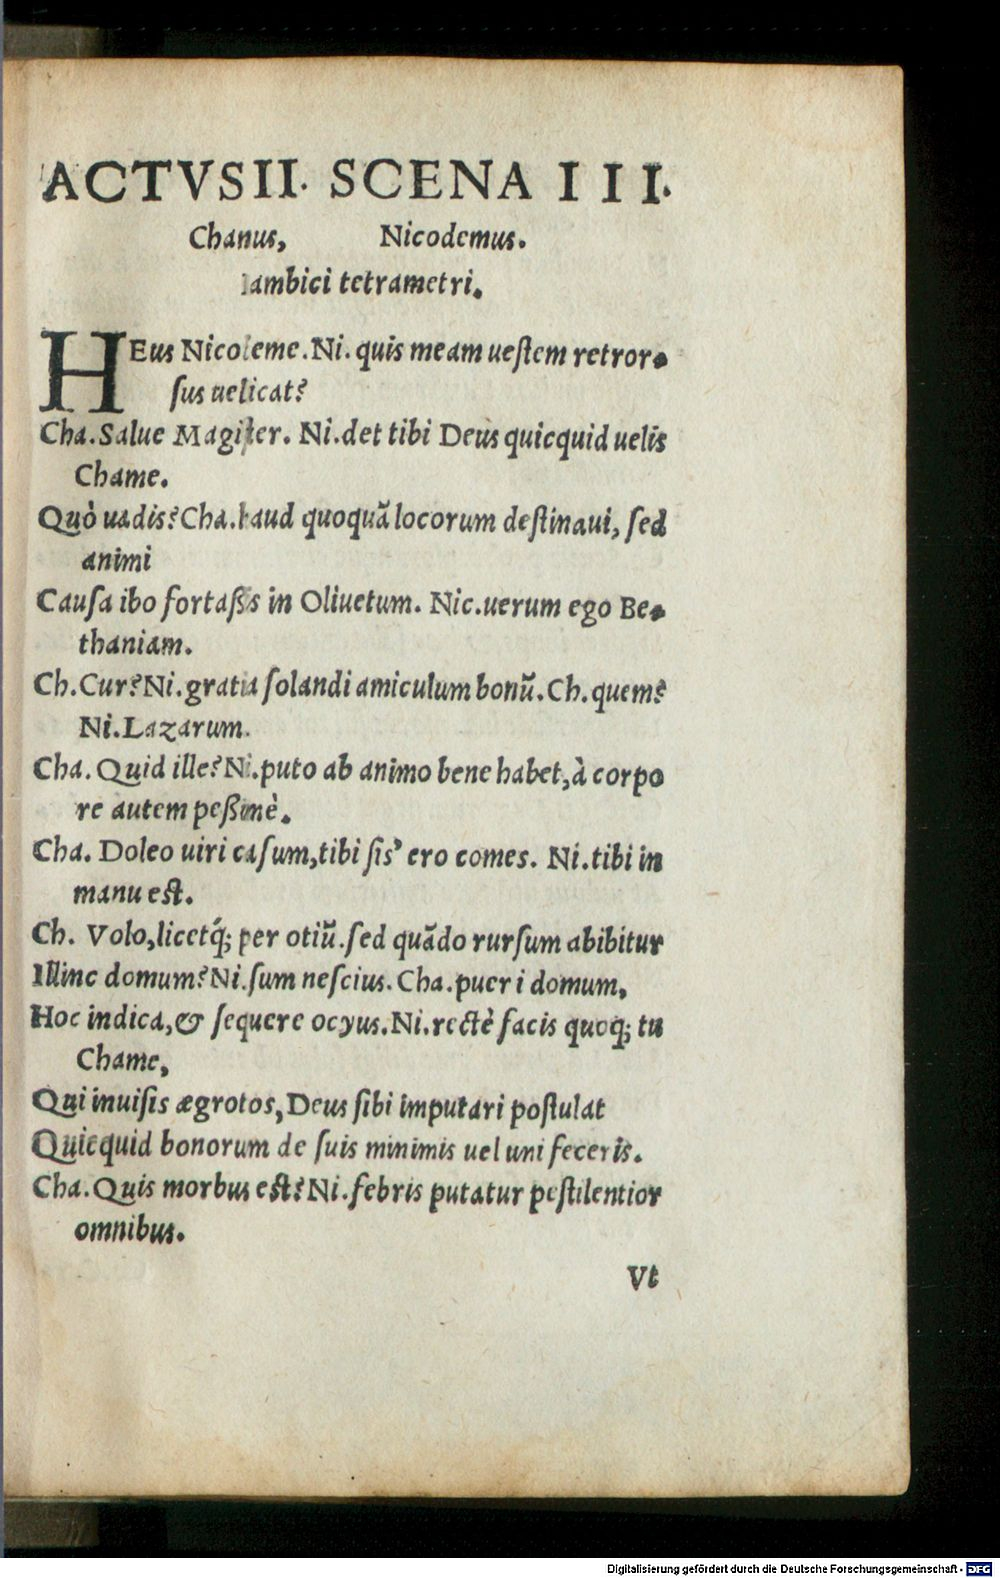 ACTVSII. SCENA III.
Chanus, Nicodemus.
Iambici tetrametri.
HEus Nicodeme. Ni. quis meam uestem retror-
sus uelicat?
Cha. Salue Magister. Ni. det tibi Deus quicquid uelis
Chame.
Quò uadis? Cha. haud quoquā locorum destinaui, sed
animi
Causa ibo fortaßis in Oliuetum. Nic. uerum ego Be-
thaniam.
Ch. Cur? Ni. gratia solandi amiculum bonū. Ch. quem?
Ni. Lazarum.
Cha. Quid ille? Ni. puto ab animo bene habet, à corpo
re autem peßimè.
Cha. Doleo uiri casum, tibi sis' ero comes. Ni. tibi in
manu est.
Ch. Volo, licetq́; per otiū. sed quādo rursum abibitur
Illinc domum? Ni. sum nescius. Cha. puer i domum,
Hoc indica, & sequere ocyus. Ni. rectè facis quoq; tu
Chame,
Qui inuisis ægrotos, Deus sibi imputari postulat
Quicquid bonorum de suis minimis uel uni feceris.
Cha. Quis morbus est? Ni. febris putatur pestilentior
omnibus.
Vt
Digitalisierung gefördert durch die Deutsche Forschungsgemeinschaft - DFG